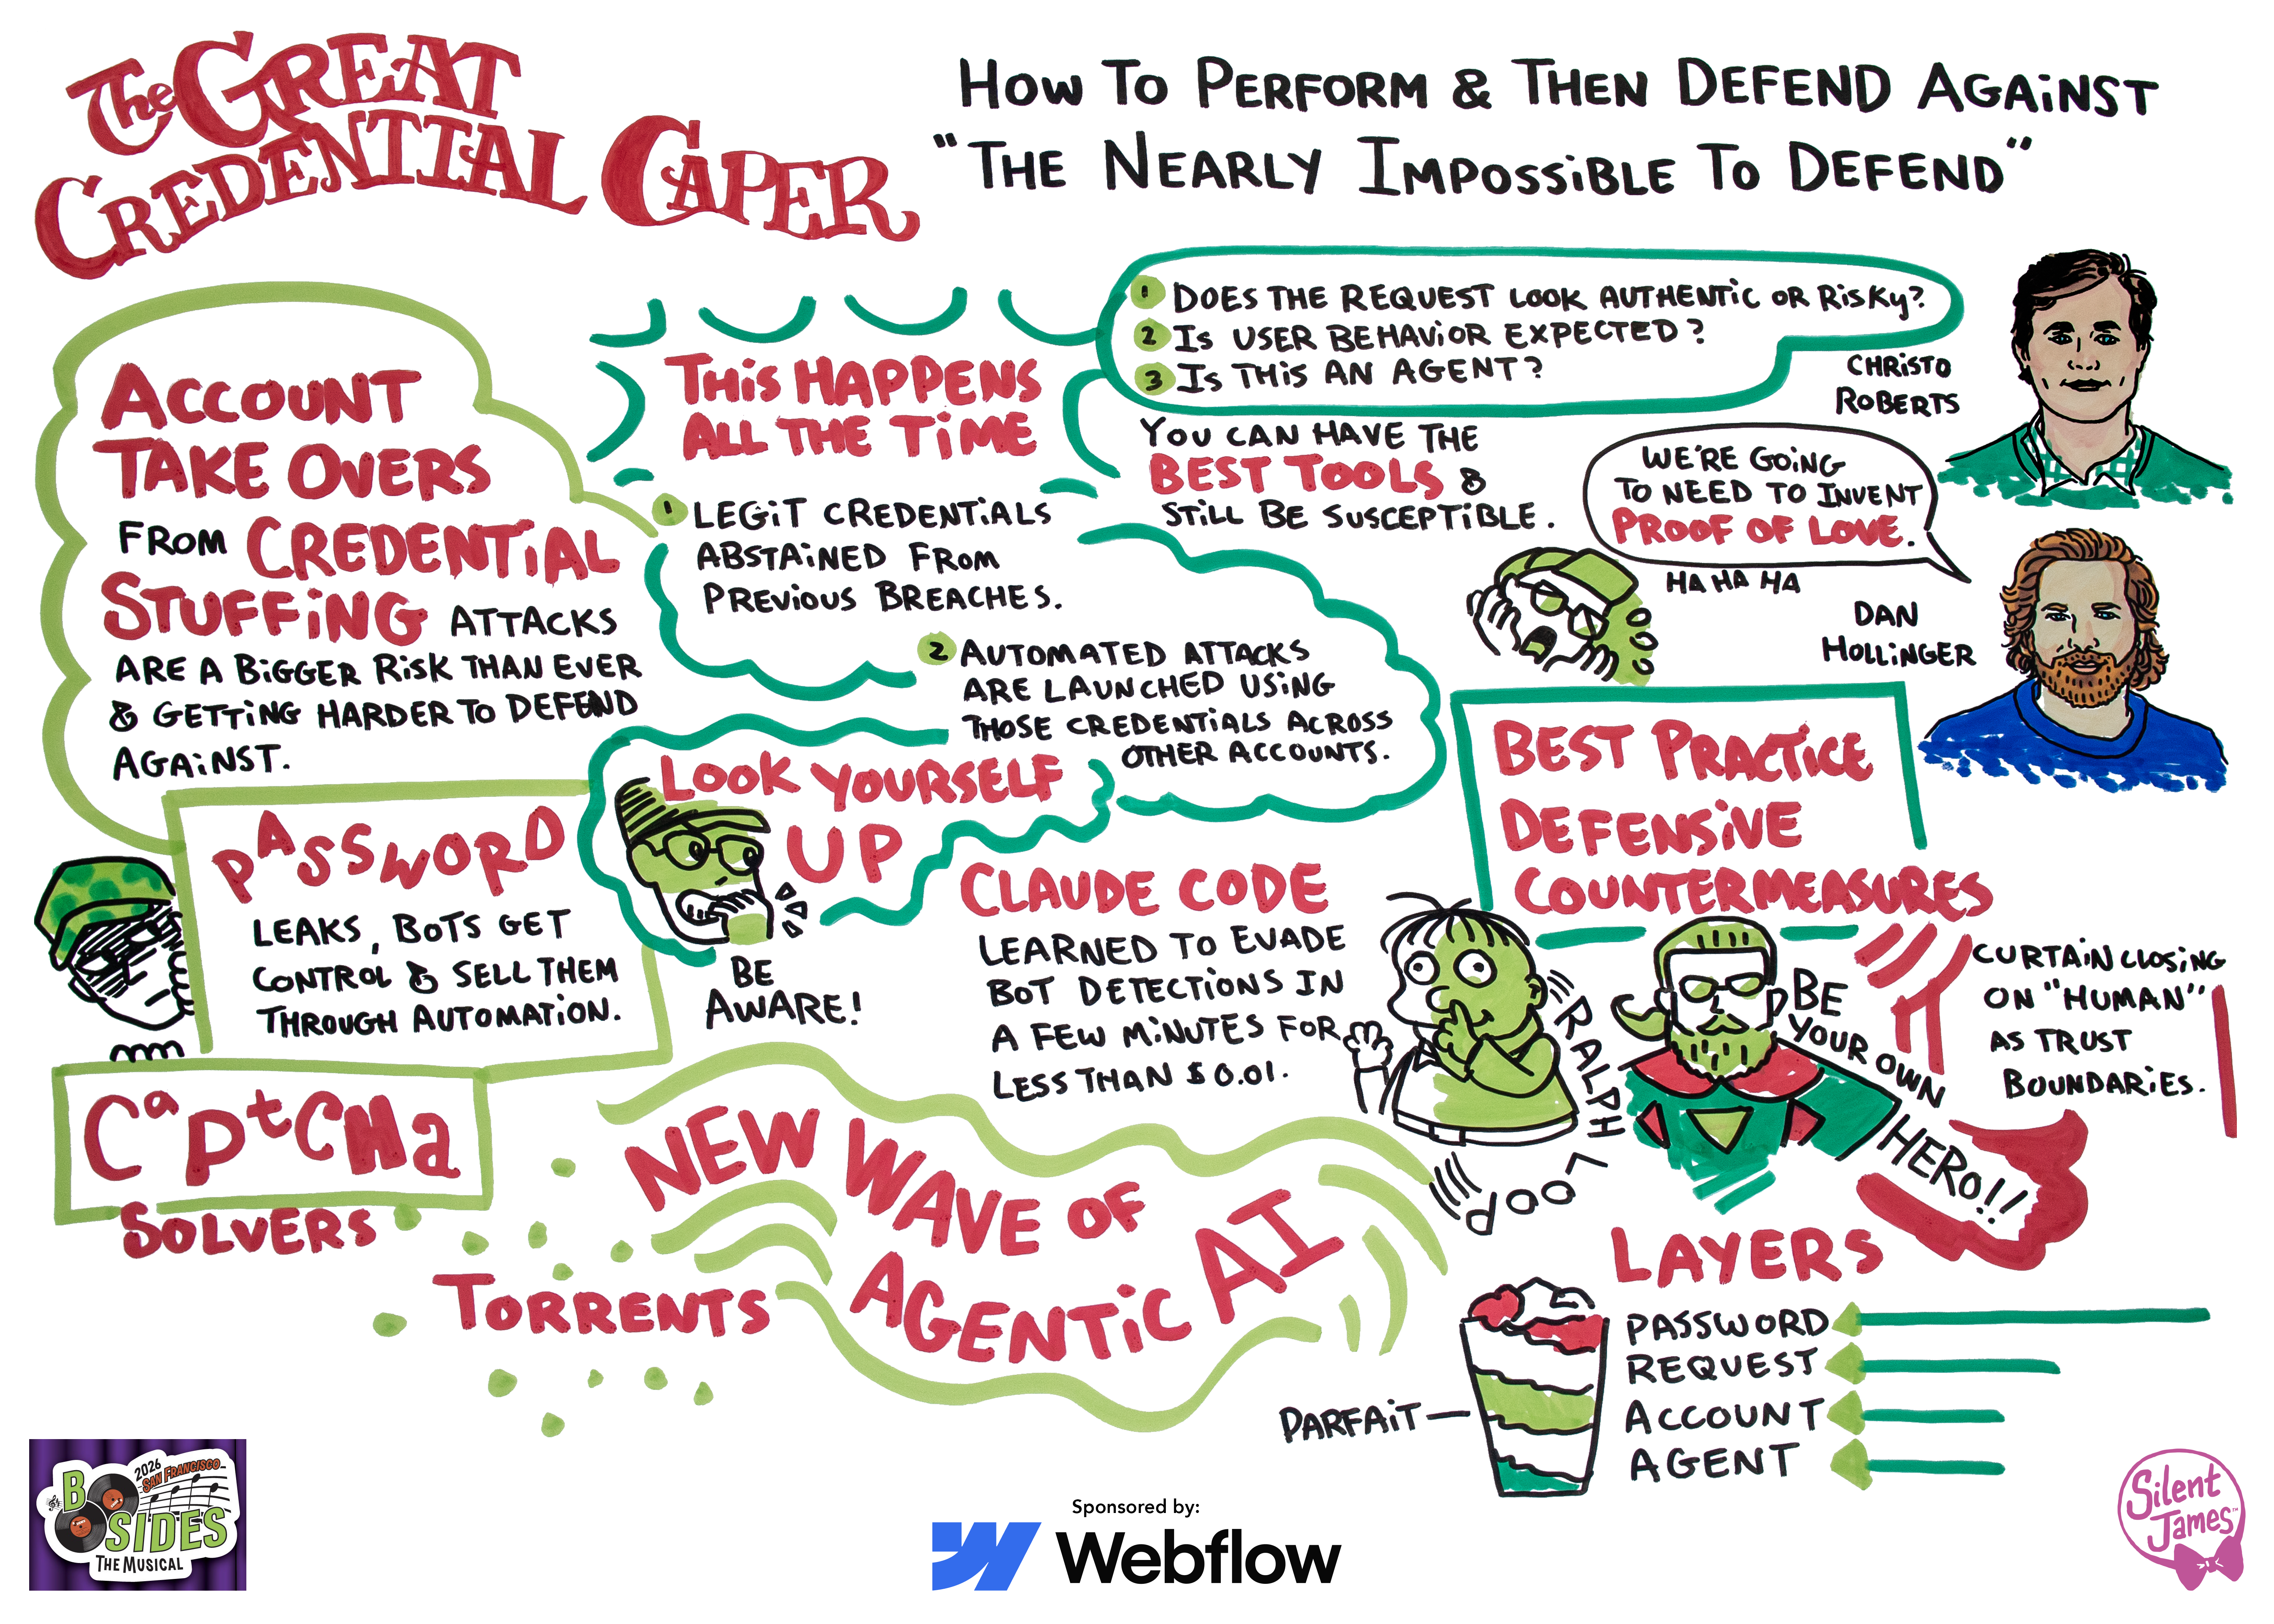 The GREAT
CREDENTIAL CAPER
HOW TO PERFORM & THEN DEFEND AGAINST
"THE NEARLY IMPOSSIBLE TO DEFEND"
ACCOUNT
TAKE OVERS
FROM CREDENTIAL
STUFFING ATTACKS
ARE A BIGGER RISK THAN EVER
& GETTING HARDER TO DEFEND
AGAINST.
THIS HAPPENS
ALL THE TIME
1 LEGIT CREDENTIALS
ABSTAINED FROM
PREVIOUS BREACHES.
2 AUTOMATED ATTACKS
ARE LAUNCHED USING
THOSE CREDENTIALS ACROSS
OTHER ACCOUNTS.
1 DOES THE REQUEST LOOK AUTHENTIC OR RISKY?
2 IS USER BEHAVIOR EXPECTED?
3 IS THIS AN AGENT?
CHRISTO
ROBERTS
YOU CAN HAVE THE
BEST TOOLS &
STILL BE SUSCEPTIBLE.
WE'RE GOING
TO NEED TO INVENT
PROOF OF LOVE.
HA HA HA
DAN
HOLLINGER
PASSWORD
LEAKS, BOTS GET
CONTROL & SELL THEM
THROUGH AUTOMATION.
LOOK YOURSELF
UP
BE
AWARE!
CLAUDE CODE
LEARNED TO EVADE
BOT DETECTIONS IN
A FEW MINUTES FOR
LESS THAN $0.01.
BEST PRACTICE
DEFENSIVE
COUNTERMEASURES
RALPH
LOOP
BE
YOUR OWN
HERO!!
CURTAIN CLOSING
ON "HUMAN"
AS TRUST
BOUNDARIES.
CaptCHa
SOLVERS
TORRENTS
NEW WAVE OF
AGENTIC AI
LAYERS
PASSWORD
REQUEST
ACCOUNT
AGENT
PARFAIT
2026
SAN FRANCISCO
B SIDES
THE MUSICAL
Sponsored by:
Webflow
Silent
James™